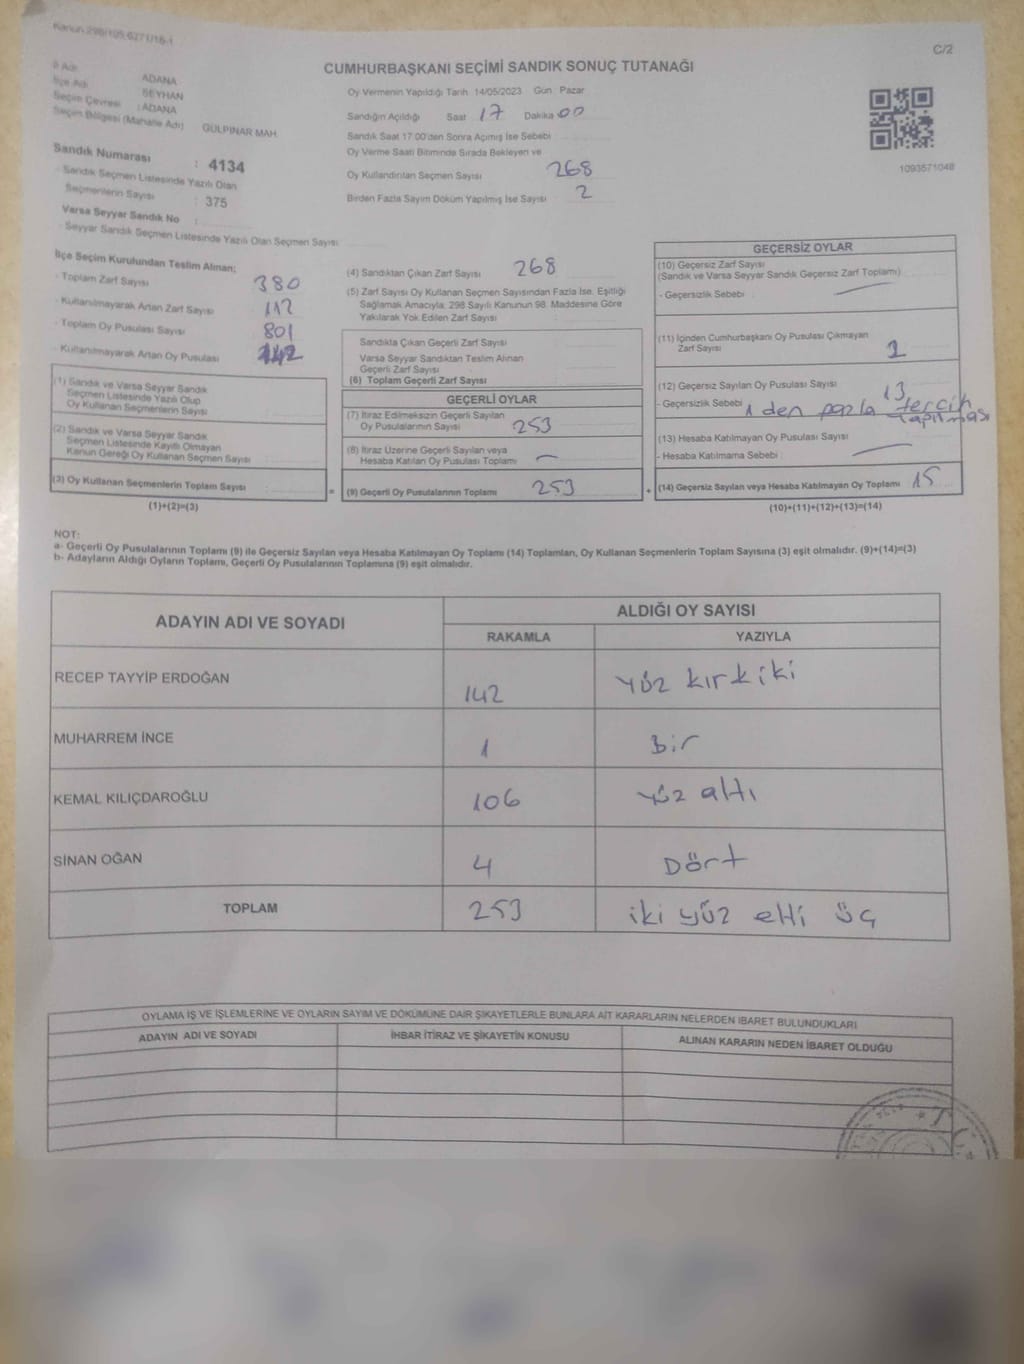 Kanun 298/105 6271/16-1
C/2
CUMHURBAŞKANI SEÇİMİ SANDIK SONUÇ TUTANAĞI
İl Adı ADANA
İlçe Adı : SEYHAN
Seçim Çevresi : ADANA
Seçim Bölgesi (Mahalle Adı) GÜLPINAR MAH.
Sandık Numarası : 4134
- Sandık Seçmen Listesinde Yazılı Olan
Seçmenlerin Sayısı : 375
Varsa Seyyar Sandık No :
- Seyyar Sandık Seçmen Listesinde Yazılı Olan Seçmen Sayısı
Oy Vermenin Yapıldığı Tarih 14/05/2023 Gün : Pazar
Sandığın Açıldığı Saat 17 Dakika 00
Sandık Saat 17:00'den Sonra Açımış İse Sebebi
Oy Verme Saati Bitiminde Sırada Bekleyen ve
Oy Kullandırılan Seçmen Sayısı 268
Birden Fazla Sayım Döküm Yapılmış İse Sayısı 2
1093571048
İlçe Seçim Kurulundan Teslim Alınan;
- Toplam Zarf Sayısı 380
- Kullanılmayarak Artan Zarf Sayısı 112
- Toplam Oy Pusulası Sayısı 801
- Kullanılmayarak Artan Oy Pusulası
(1) Sandık ve Varsa Seyyar Sandık
Seçmen Listesinde Yazılı Olup
Oy Kullanan Seçmenlerin Sayısı :
(2) Sandık ve Varsa Seyyar Sandık
Seçmen Listesinde Kayıtlı Olmayan
Kanun Gereği Oy Kullanan Seçmen Sayısı
(3) Oy Kullanan Seçmenlerin Toplam Sayısı :
(1)+(2)=(3)
(4) Sandıktan Çıkan Zarf Sayısı 268
(5) Zarf Sayısı Oy Kullanan Seçmen Sayısından Fazla İse, Eşitliği
Sağlamak Amacıyla, 298 Sayılı Kanunun 98. Maddesine Göre
Yakılarak Yok Edilen Zarf Sayısı :
Sandıkta Çıkan Geçerli Zarf Sayısı
Varsa Seyyar Sandıktan Teslim Alınan
Geçerli Zarf Sayısı
(6) Toplam Geçerli Zarf Sayısı
GEÇERLİ OYLAR
(7) İtiraz Edilmeksizin Geçerli Sayılan
Oy Pusulalarının Sayısı 253
(8) İtiraz Üzerine Geçerli Sayılan veya
Hesaba Katılan Oy Pusulası Toplamı —
= (9) Geçerli Oy Pusulalarının Toplamı 253 +
GEÇERSİZ OYLAR
(10) Geçersiz Zarf Sayısı
(Sandık ve Varsa Seyyar Sandık Geçersiz Zarf Toplamı)
- Geçersizlik Sebebi —
(11) İçinden Cumhurbaşkanı Oy Pusulası Çıkmayan
Zarf Sayısı 2
(12) Geçersiz Sayılan Oy Pusulası Sayısı 13
- Geçersizlik Sebebi 1 den pazla tercih
yapılması
(13) Hesaba Katılmayan Oy Pusulası Sayısı
- Hesaba Katılmama Sebebi —
(14) Geçersiz Sayılan veya Hesaba Katılmayan Oy Toplamı 15
(10)+(11)+(12)+(13)=(14)
NOT:
a- Geçerli Oy Pusulalarının Toplamı (9) ile Geçersiz Sayılan veya Hesaba Katılmayan Oy Toplamı (14) Toplamları, Oy Kullanan Seçmenlerin Toplam Sayısına (3) eşit olmalıdır. (9)+(14)=(3)
b- Adayların Aldığı Oyların Toplamı, Geçerli Oy Pusulalarının Toplamına (9) eşit olmalıdır.
ADAYIN ADI VE SOYADI ALDIĞI OY SAYISI
RAKAMLA YAZIYLA
RECEP TAYYİP ERDOĞAN 142 yüz kırkiki
MUHARREM İNCE 1 Bir
KEMAL KILIÇDAROĞLU 106 yüz altı
SİNAN OĞAN 4 Dört
TOPLAM 253 iki yüz elli üç
OYLAMA İŞ VE İŞLEMLERİNE VE OYLARIN SAYIM VE DÖKÜMÜNE DAİR ŞİKAYETLERLE BUNLARA AİT KARARLARIN NELERDEN İBARET BULUNDUKLARI
ADAYIN ADI VE SOYADI İHBAR İTİRAZ VE ŞİKAYETİN KONUSU ALINAN KARARIN NEDEN İBARET OLDUĞU